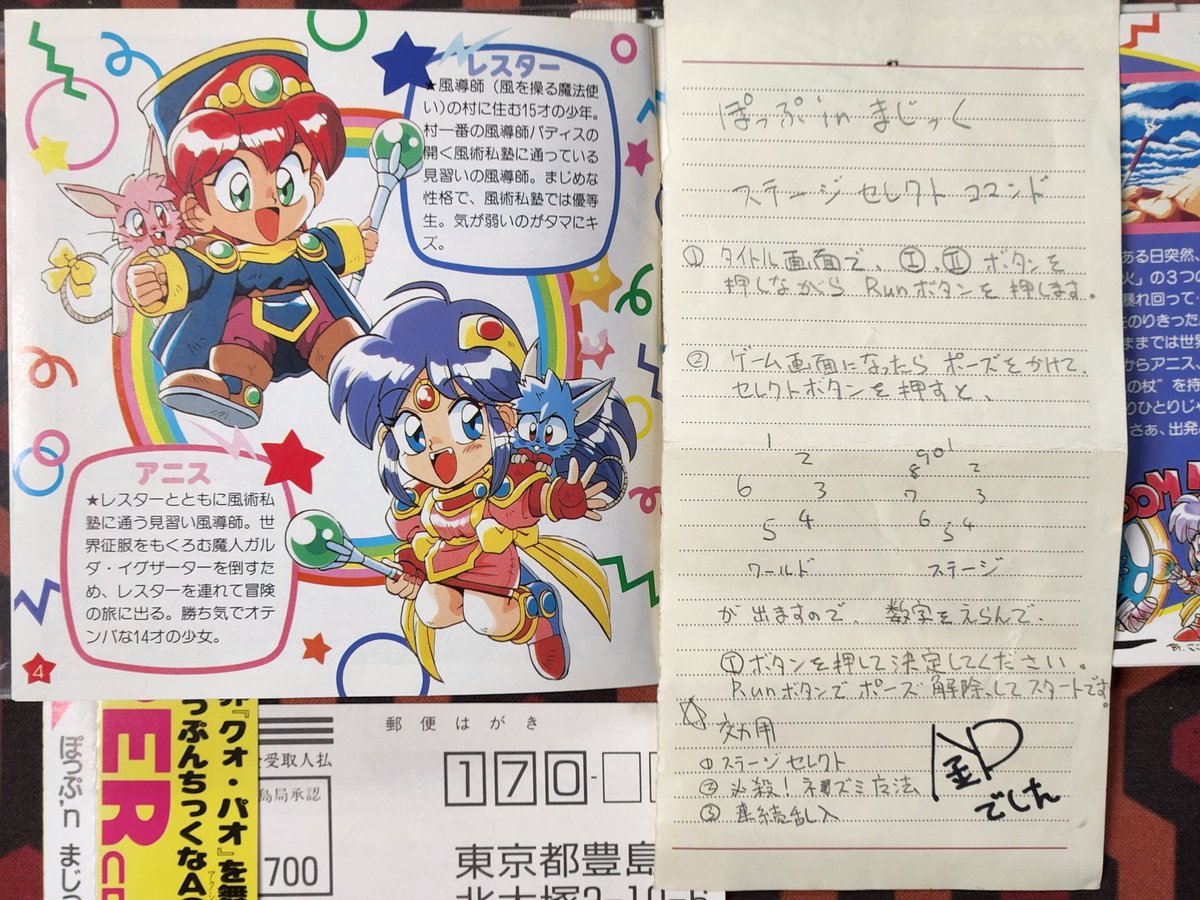 レスター
★風導師（風を操る魔法使
い）の村に住む15才の少年。
村一番の風導師バディスの
開く風術私塾に通っている
見習いの風導師。まじめな
性格で、風術私塾では優等
生。気が弱いのがタマにキ
ズ。
アニス
★レスターとともに風術私
塾に通う見習い風導師。世
界征服をもくろむ魔人ガル
ダ・イグザーターを倒すた
め、レスターを連れて冒険
の旅に出る。勝ち気でオテ
ンバな14才の少女。
4
ぽっぷinまじっく
ステージセレクトコマンド
① タイトル画面で、Ⅰ、Ⅱボタンを
押しながら Runボタンを押します。
② ゲーム画面になったらポーズをかけて、
セレクトボタンを押すと、
1 2 3 4 5 6
0 1 2 3 4 5 6 7 8 9
ワールド ステージ
が出ますので、数字をえらんで、
Ⅰボタンを押して決定してください。
Runボタンでポーズ解除してスタートです。
☆効用
① ステージセレクト
② 必殺！ネズミ方法
③ 連続乱入
でした
ある日突然、
火」の3つの
暴れ回って
をのりきった
ままでは世界
からアニス、
の杖”を持
りひとりじゃ
さぁ、出発
ぽっぷ'n まじっ
ER
『クオ・パオ』を
っぷんちっくなA
郵便はがき
受取人払
島局承認
700
170-
東京都豊島
北大塚2-10-6